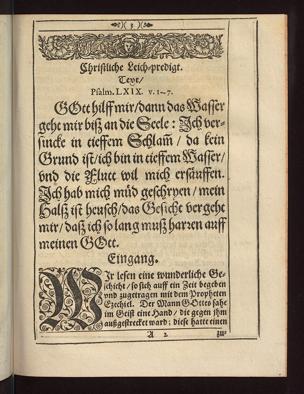 )( 3 )(
Christliche Leich-predigt.
Text/
Psalm. LXIX. v. 1-7.
GOtt hilff mir/dann das Wasser
gehe mir biß an die Seele: Ich ver-
sincke in tieffem Schlam̃/ da kein
Grund ist/ich bin in tieffem Wasser/
vnd die Flutt wil mich ersäuffen.
Ich hab mich müd geschryen/mein
Halß ist heusch/das Gesicht vergeht
mir/daß ich so lang muß harren auff
meinen GOtt.
Eingang.
WIr lesen eine wunderliche Ge-
schicht/so sich auff ein Zeit begeben
vnd zugetragen mit dem Propheten
Ezechiel. Der Mann GOttes sahe
im Geist eine Hand/ die gegen jhm
außgestrecket ward; diese hatte einen
A 2 zu-